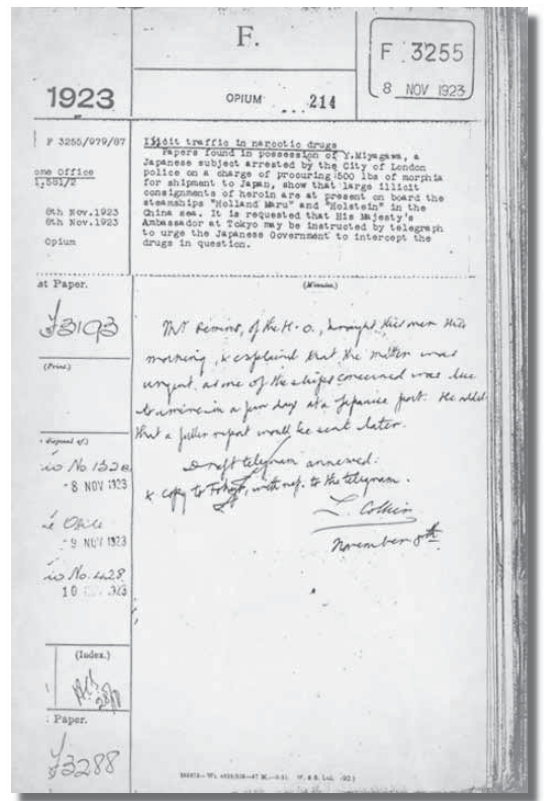 F.
F 3255
8 NOV 1923
1923
OPIUM
214
F 3255/979/87
ome Office
8th Nov.1923
8th Nov.1923
Opium
Illicit traffic in narcotic drugs
Papers found in possession of Y.Miyagawa, a
Japanese subject arrested by the City of London
police on a charge of procuring 500 lbs of morphia
for shipment to Japan, show that large illicit
consignments of heroin are at present on board the
steamships "Holland Maru" and "Holstein" in the
China sea. It is requested that His Majesty's
Ambassador at Tokyo may be instructed by telegraph
to urge the Japanese Government to intercept the
drugs in question.
st Paper.
3193
(Print.)
disposal of.)
-8 NOV 1923
-9 NOV 1923
No. 428
10
(Index.)
Paper.
3288
(Minutes.)
Mr of the H.O., brought this over this
morning, & explained that the matter was
urgent, as one of the ships concerned was due
to arrive in a few days at a Japanese port. He added
that a fuller report would be sent later.
Draft telegram annexed.
& copy to Tokyo, with ref. to the telegram.
November 8th